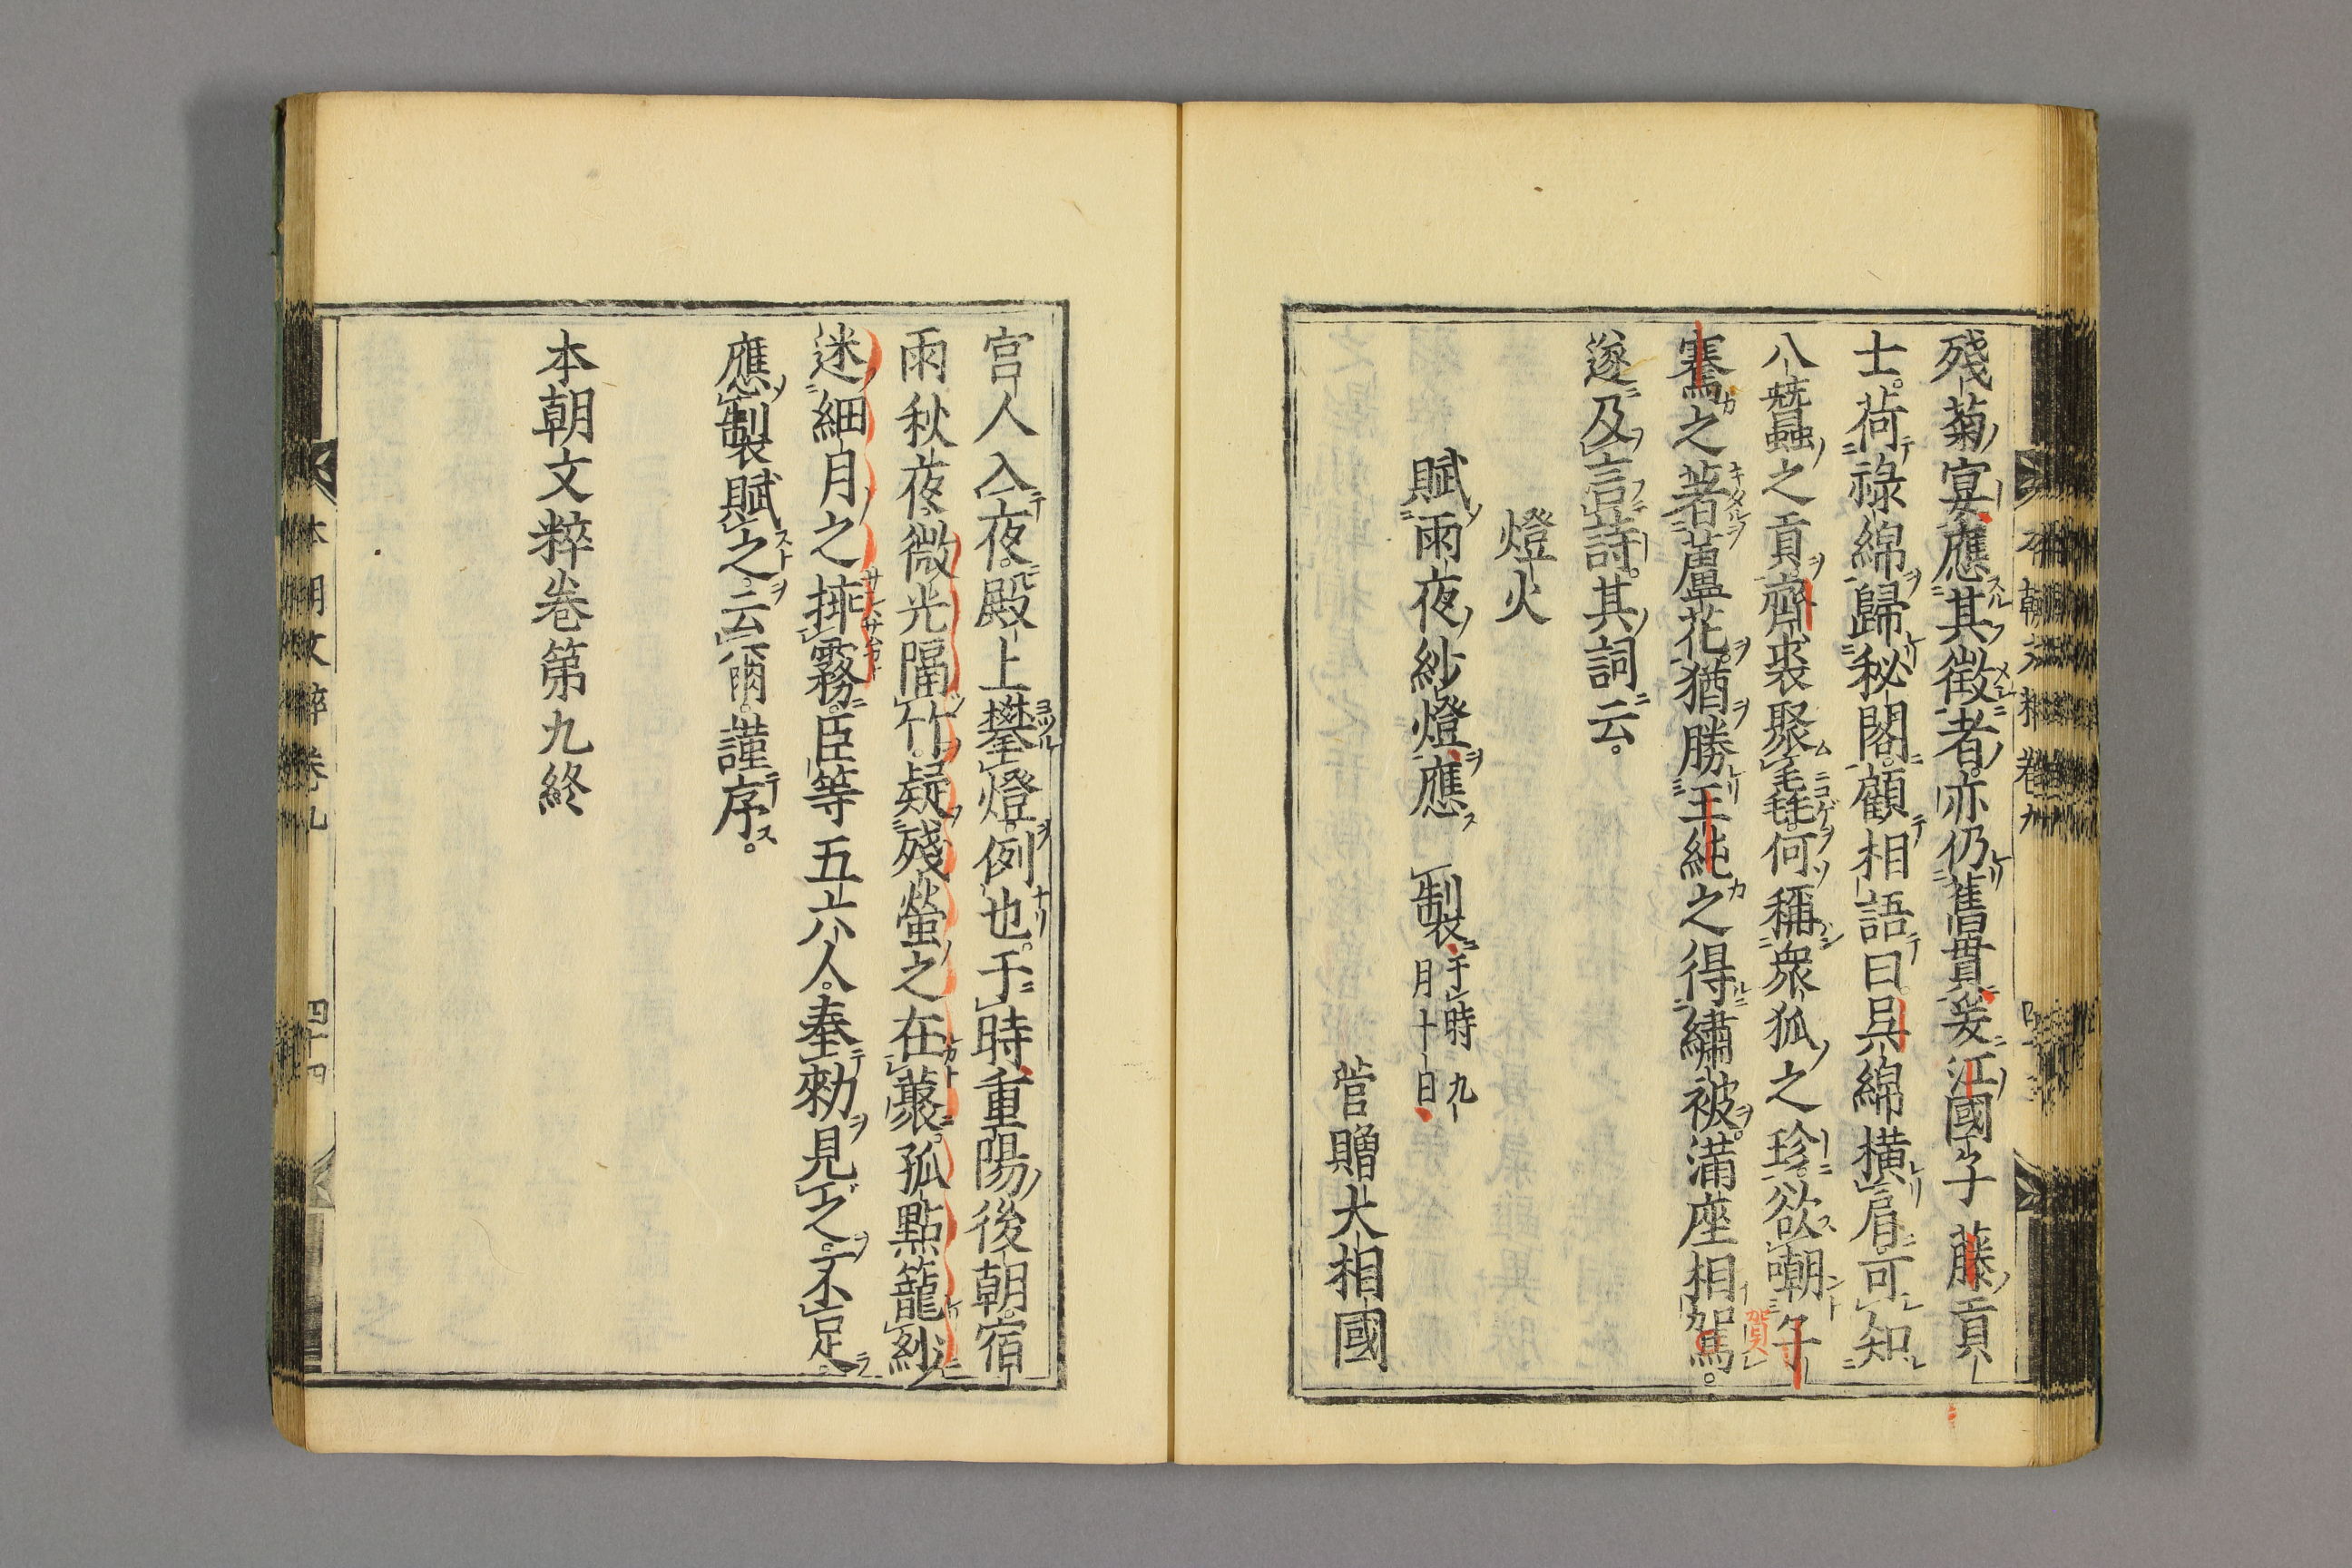 殘菊宴應其徵者亦仍舊貫爰江國子藤貢
士荷祿綿歸秘閣顧相語曰吳綿橫肩可知
八蠶之貢齊裘聚毛毳何稱衆狐之珍欲嘲子
騫之著蘆花猶勝王純之得繡被滿座相駕
賀
遂及言詩其詞云
燈火
賦雨夜紗燈應 製于時九
月十日
菅贈大相國
本朝文粹卷九
宮人入夜殿上擧燈例也于時重陽後朝宿
雨秋夜微光隔竹疑殘螢之在叢孤點籠紗
迷細月之排霧臣等五六人奉勅見之不足
應製賦之云爾謹序
本朝文粹卷第九終
本朝文粹卷九 四十四